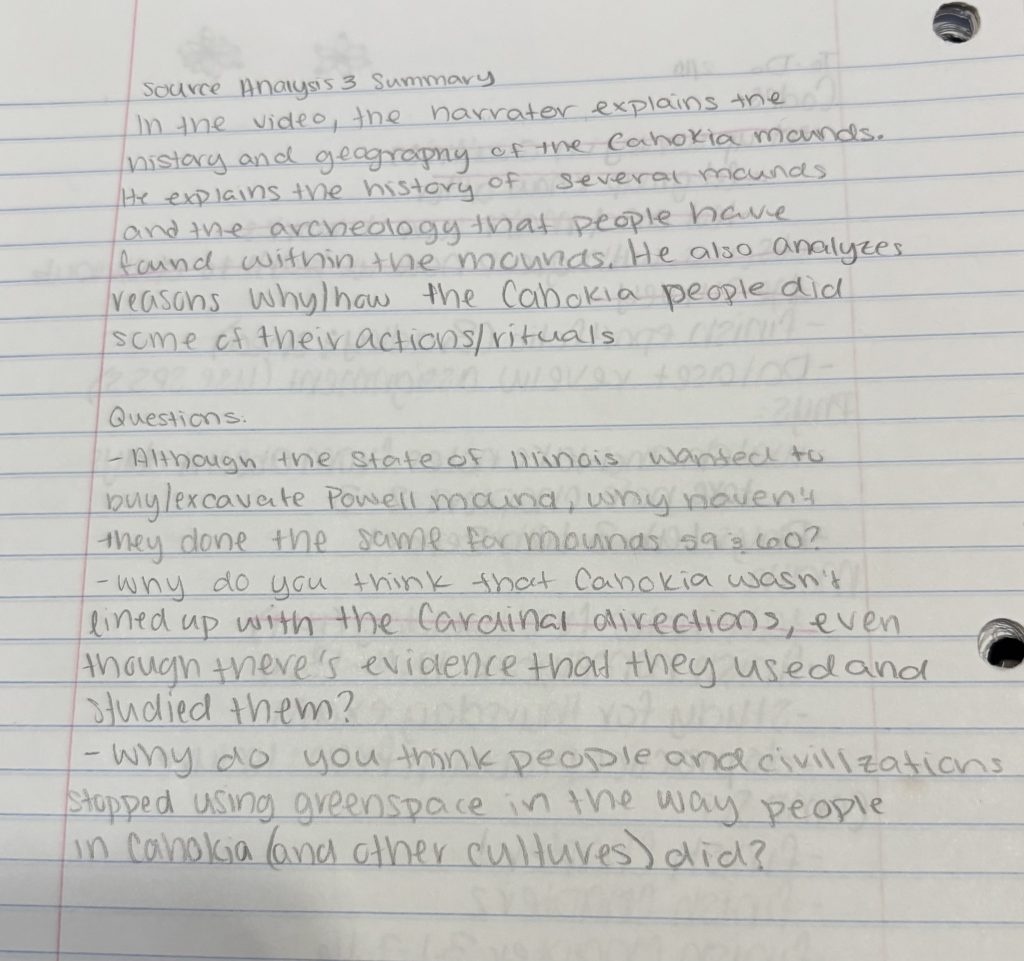 Source Analysis 3 Summary
In the video, the narrater explains the
history and geography of the Cahokia mounds.
He explains the history of several mounds
and the archeology that people have
found within the mounds. He also analyzes
reasons why/how the Cahokia people did
some of their actions/rituals
Questions:
- Although the state of Illinois wanted to
buy/excavate Powell mound, why haven't
they done the same for mounds 59 & 60?
- Why do you think that Cahokia wasn't
lined up with the Cardinal directions, even
though there's evidence that they used and
studied them?
- Why do you think people and civilizations
stopped using greenspace in the way people
in Cahokia (and other cultures) did?